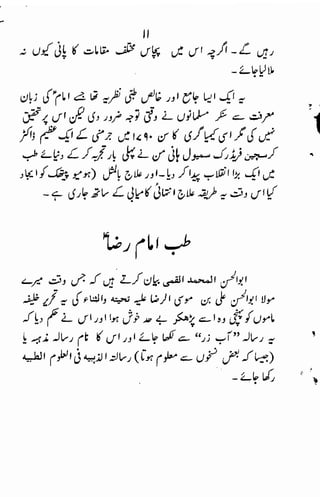 ۱۱
رہیں گے ۔ اگرچہ اس میں پچاس مختلف مقامات کا پانی کیوں نہ
ملالیا جائے ۔
یہ ایک ایسا جامع اور خالص طبی نظریہ تھا جسے امامؑ کی زبان
معرفت سے سنکر مسلمانوں نے وقتی توجہ ضرور دی لیکن اس پر تحقیق
نہیں کی مگر اسی کیمیاگری کا سن ۱۷۹۰ء میں جرمنی کے ایک عظیم ڈاکٹر
کرسچین فریڈرک سیمول ہانی من نے پہلی بار تجربہ کر کے دنیائے طب
میں ایک بڑا انقلاب پیدا کر دیا ۔ اور علاج بالمثل (ہومیو پیتھک) کو ایجاد
کیا اس وقت یہ طریقہ علاج انتہائی کامیابی کے ساتھ جاری ہے ۔
طب امام رضاؑ
ابوالحسن المحمد القمی بیان کرتے ہیں کہ جس وقت میرے
مولا ابوالحسن علی بن موسی الرضا علیہ تحیتہ والثناء کی یہ تحریر خلیفہ
ماموں کو پہنچی وہ اسے پڑھکر بے حد خوش ہوا اور اس نے حکم دیا کہ
یہ رسالہ “آب زر“ سے لکھا جائے اور اس کا نام رسالہ ذہبیہ یا
(جیسا کہ بعض نسخوں سے معلوم ہوتا) رسالتہ الذہبیہ فی العلوم الطبیہ
رکھا جائے ۔